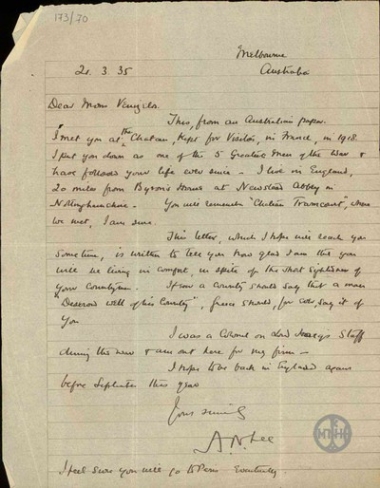 173/70
Melbourne
Australia
21. 3. 35
Dear Mons Venizelos
This, from an Australian paper.
I met you at the Chateau, kept for Visitors, in France, in 1918.
I put you down as one of the 5 Greatest Men of the War &
have followed your life ever since - I live in England,
20 miles from Byron's House at Newstead Abbey in
Nottinghamshire. You will remember "Chateau", where
we met, I am sure.
This letter, which I hope will reach you
some time, is written to tell you how glad I am that you
will be living in comfort, in spite of the short sightedness of
your Countrymen. If ever a Country should say that a man
"Deserved well of his Country", Greece should, say it of
you
I was a Colonel on Lord Haig's Staff
during the war & am out here for my firm -
I hope to be back in England again
before September this year
Yours sincerely
A. N. Lee
I feel sure you will go to Paris eventually